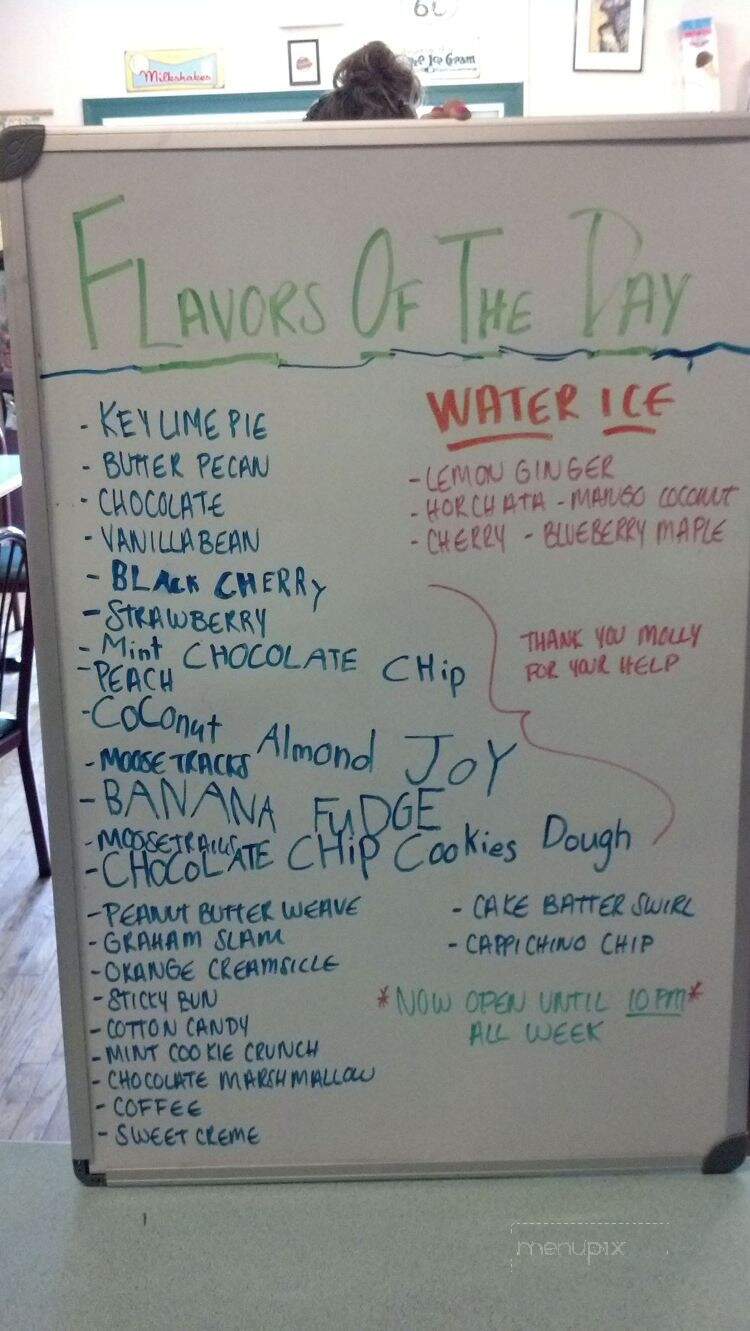 60
Milkshakes
Ice Cream
FLAVORS OF THE DAY
- KEY LIME PIE
- BUTTER PECAN
- CHOCOLATE
- VANILLA BEAN
- BLACK CHERRY
- STRAWBERRY
- Mint CHOCOLATE CHip
- PEACH
- COCOnut Almond JOY
- MOOSETRACKS
- BANANA FUDGE
- MOOSETRAILS
- CHOCOLATE CHiP Cookies Dough
- PEANUT BUTTER WEAVE
- GRAHAM SLAM
- ORANGE CREAMSICLE
- STICKY BUN
- COTTON CANDY
- MINT COOKIE CRUNCH
- CHOCOLATE MARSHMALLOW
- COFFEE
- SWEET CREME
WATER ICE
- LEMON GINGER
- HORCHATA - MANGO COCONUT
- CHERRY - BLUEBERRY MAPLE
THANK YOU MOLLY
FOR YOUR HELP
- CAKE BATTER SWIRL
- CAPPICHINO CHIP
*NOW OPEN UNTIL 10PM*
ALL WEEK
menupix